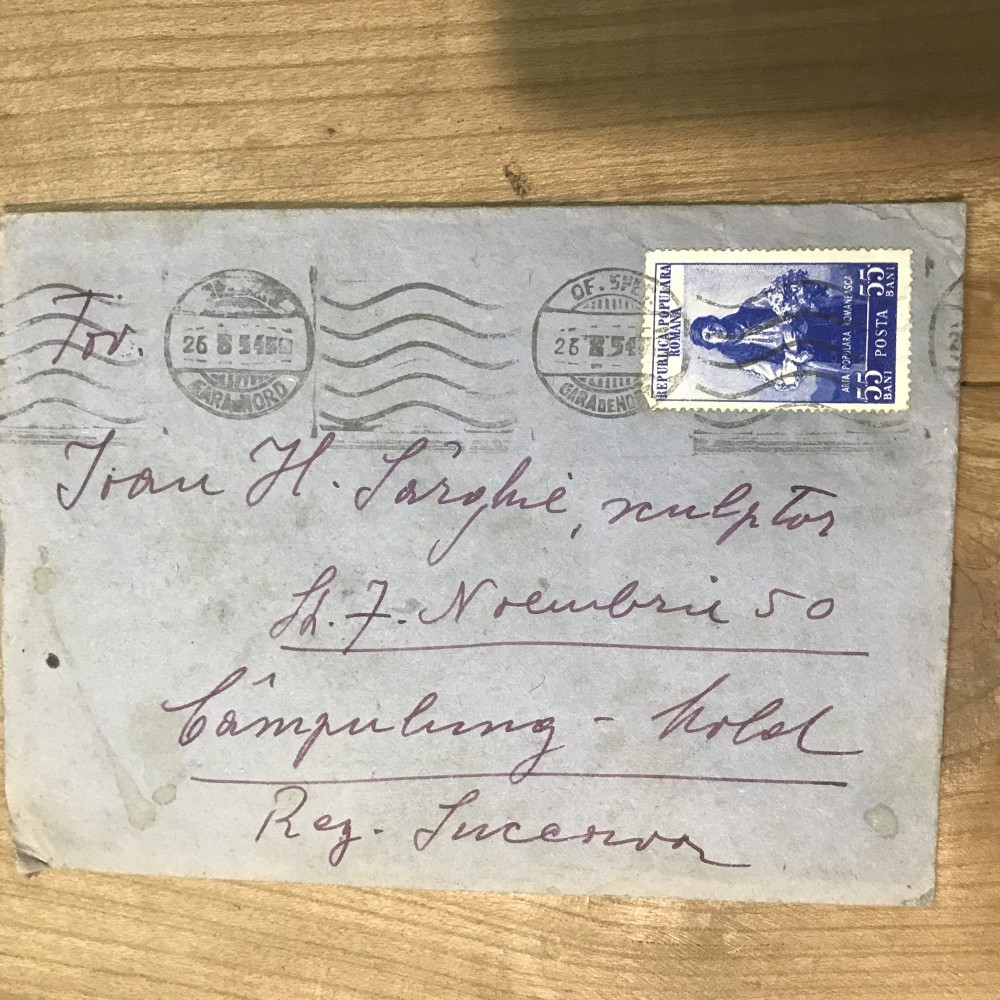 Tov.
26 8 54
GARA NORD
OF. SPE
26 54
GARA DE NO
REPUBLICA POPULARA
ROMANA
ARTA POPULARA ROMANEASCA
55 BANI POSTA 55 BANI
Ioan H. Sârghie, sculptor
St. 7. Noembrie 50
Câmpulung - Mold
Reg. Suceava